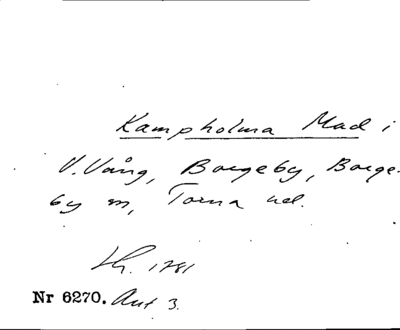 Kampholma Mad i
V. Vång, Borgeby, Borge-
by sn, Torna hd.
Lh. 1781
Nr 6270. Akt 3.